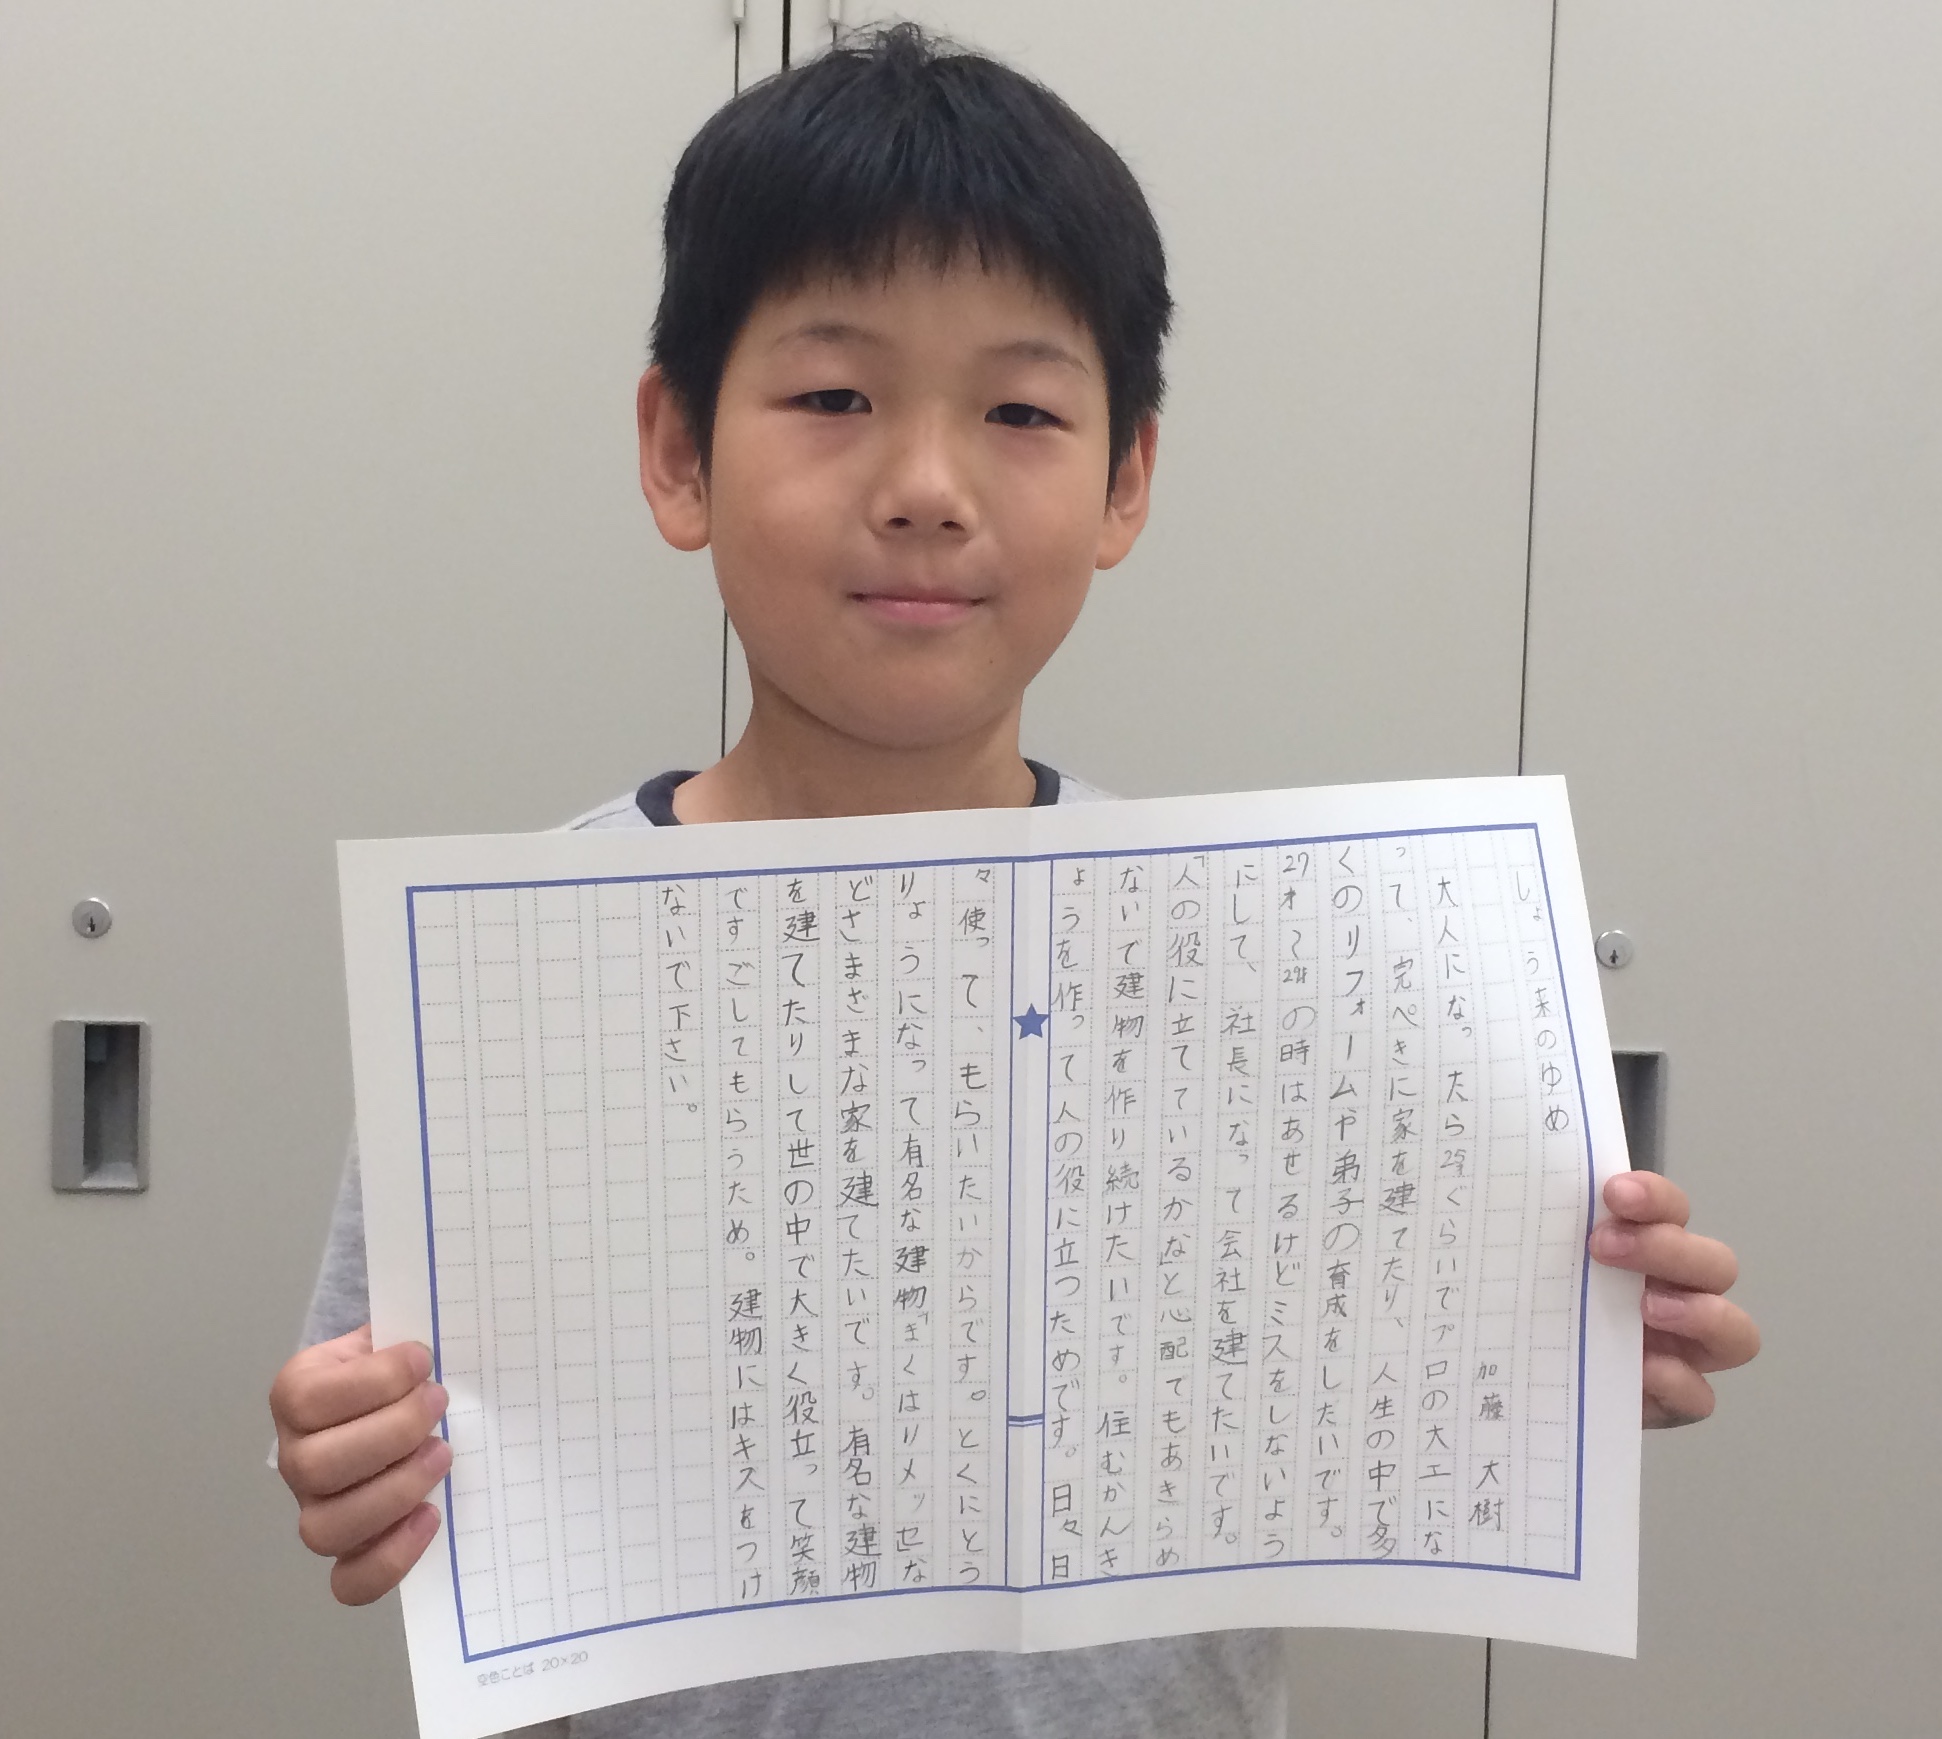 しょう来のゆめ
加藤 大樹
大人になったら25才ぐらいでプロの大工にな
って、完ぺきに家を建てたり、人生の中で多
くのリフォームや弟子の育成をしたいです。
27才〜29才の時はあせるけどミスをしないよう
にして、社長になって会社を建てたいです。
「人の役に立てているかな」と心配てもあきらめ
ないで建物を作り続けたいです。住むかんき
ょうを作って人の役に立つためです。日々日
々使って、もらいたいからです。とくにとう
りょうになって有名な建物「まくはりメッセ」な
どさまざまな家を建てたいです。有名な建物
を建てたりして世の中で大きく役立って笑顔
ですごしてもらうため。建物にはキスをつけ
ないで下さい。
空色ことば 20×20